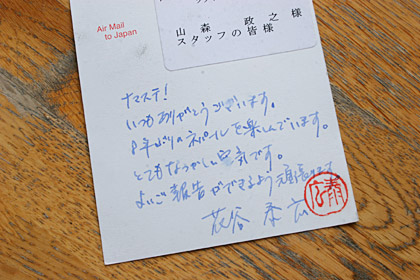 山森 政之 様
スタッフの皆様
Air Mail
to Japan
ナマステ!
いつもありがとうございます。
8年ぶりのネパールを楽しんでいます。
とてもなつかしい空気です。
よいご報告ができるよう頑張ります。
花谷 泰広
泰広